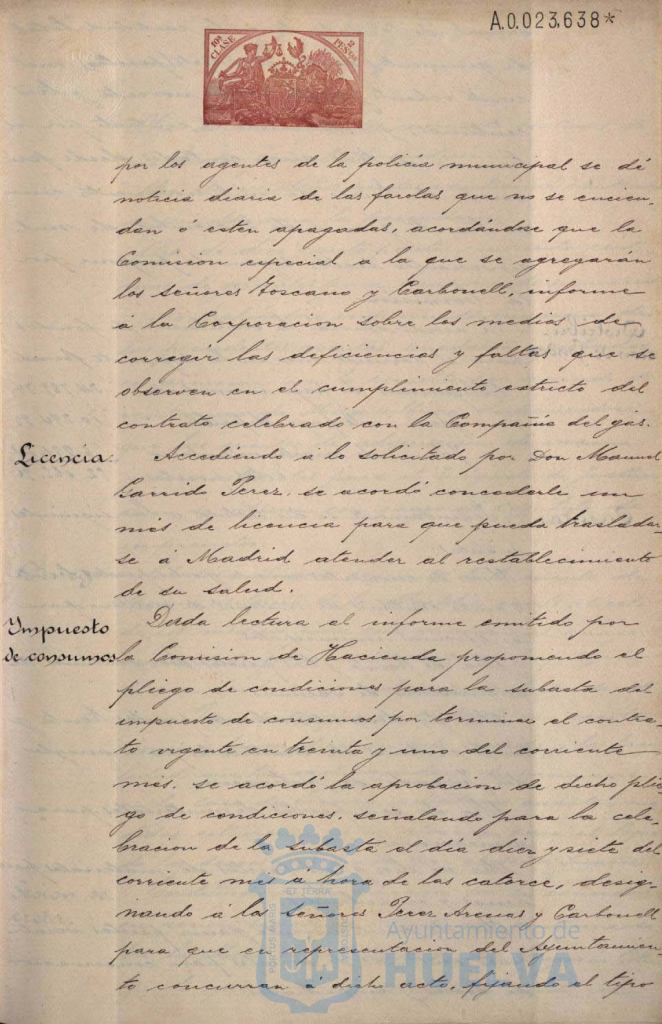 A.0.023,638*
10ª CLASE
2 PESETAS
por los agentes de la policia municipal se dé
noticia diaria de las farolas que no se encien-
dan ó esten apagadas, acordándose que la
Comision especial a la que se agregarán
los señores Toscano y Carbonell, informe
á la Corporacion sobre los medios de
corregir las deficiencias y faltas que se
observen en el cumplimiento estricto del
contrato celebrado con la Compañia del gas.
Licencia:
Accediendo á lo solicitado por Don Manuel
Garrido Perez, se acordó concederle un
més de licencia para que pueda traslada-
se á Madrid atender al restablecimiento
de su salud.
Impuesto
de consumos
Dada lectura al informe emitido por
la Comision de Hacienda proponiendo el
pliego de condiciones para la subasta del
impuesto de consumos por terminar el contra-
to vigente en treinta y uno del corriente
més, se acordó la aprobacion de dicho plie-
go de condiciones, señalando para la cele-
bracion de la subasta el día diez y siete del
corriente més á hora de las catorce, desig-
nando á los señores Perez Arenas y Carbonell
para que en representacion del Ayuntamien-
to concurran á dicho acto, fijando el tipo
PORTUS MARIS ET TERRAE CUSTODIA
Ayuntamiento de
HUELVA